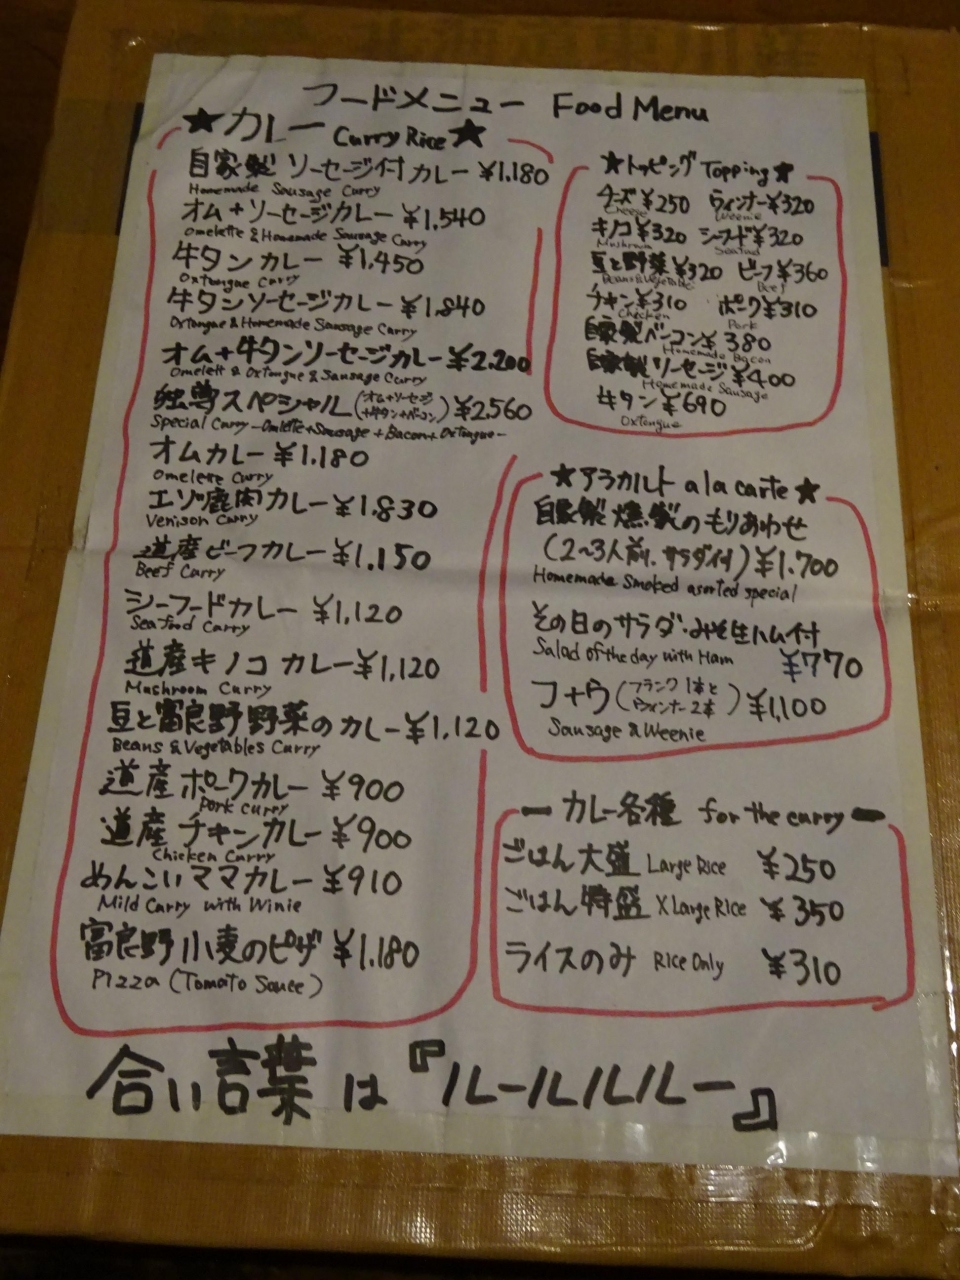 フードメニュー Food Menu
★カレー Curry Rice★
自家製 ソーセージ付 カレー ¥1,180
Homemade Sausage Curry
オム+ソーセージカレー ¥1,540
Omelette & Homemade Sausage Curry
牛タンカレー ¥1,450
Oxtongue Curry
牛タンソーセージカレー ¥1,840
Oxtongue & Homemade Sausage Curry
オム+牛タンソーセージカレー ¥2,200
Omelett & Oxtongue & Sausage Curry
独尊スペシャル(オム+ソーセージ+牛タン+ベーコン) ¥2560
Special Curry -Omlette+Sausage+Bacon+Oxtongue-
オムカレー ¥1,180
Omelette Curry
エゾ鹿肉カレー ¥1,830
Venison Curry
道産ビーフカレー ¥1,150
Beef Curry
シーフードカレー ¥1,120
Seafood Curry
道産キノコ カレー ¥1,120
Mushroom Curry
豆と富良野野菜のカレー ¥1,120
Beans & Vegetables Curry
道産ポークカレー ¥900
Pork Curry
道産チキンカレー ¥900
Chicken Curry
めんこいママカレー ¥910
Mild Curry with Winie
富良野小麦のピザ ¥1,180
Pizza (Tomato Sauce)
★トッピング Topping★
チーズ¥250 ウィンナー¥320
Cheese Weenie
キノコ¥320 シーフード¥320
Mushroom Seafood
豆と野菜¥320 ビーフ¥360
Beans & Vegetables Beef
チキン¥310 ポーク¥310
Chicken Pork
自家製ベーコン¥380
Homemade Bacon
自家製ソーセージ¥400
Homemade Sausage
牛タン¥690
Oxtongue
★アラカルト a la carte★
自家製燻製のもりあわせ
(2~3人前、サラダ付) ¥1,700
Homemade Smoked asorted special
その日のサラダ・みそ生ハム付
Salad of the day with Ham ¥770
フ+ウ(フランク1本とウィンナー2本) ¥1,100
Sausage & Weenie
ー カレー各種 for the curry ー
ごはん大盛 Large Rice ¥250
ごはん特盛 X Large Rice ¥350
ライスのみ Rice Only ¥310
合い言葉は『ルールルルー』